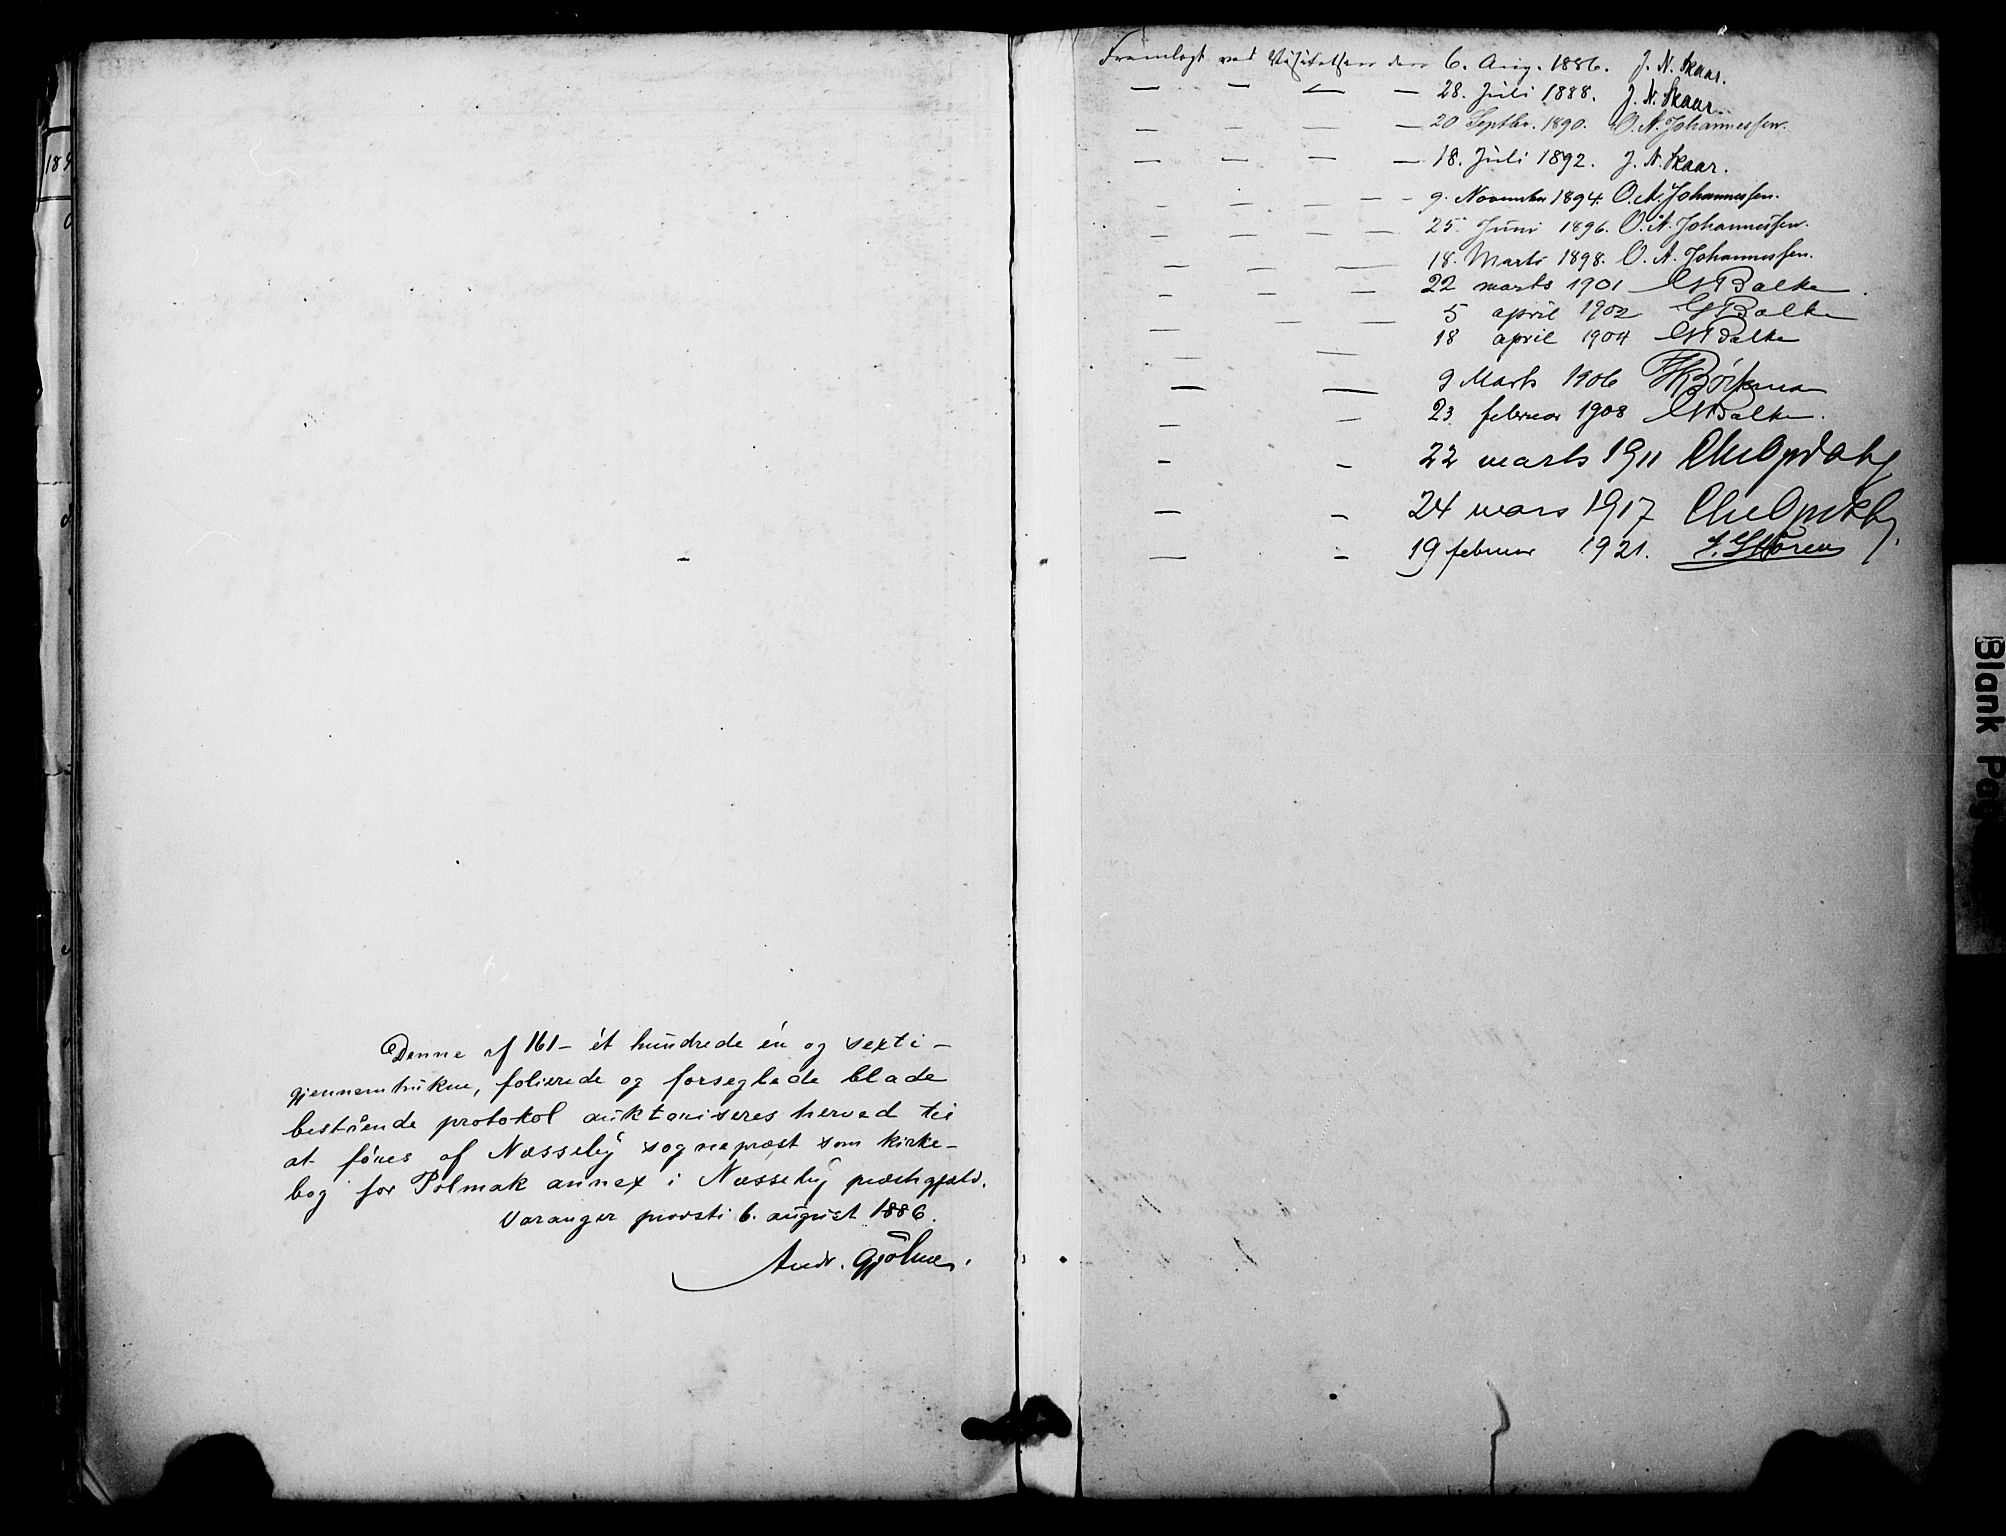 Denne af 161 – ét hundrede én og sexti –
gjennemtrukne, folierede og forseglede blade
bestående protokol auktoriseres herved til
at føres af Næsseby sognepræst som kirke-
bog for Polmak annex i Næsseby præstegjæld.
Varanger provsti 6. august 1886.
Andr. Gjølme.
Fremlagt ved Visitatsen den 6. Aug. 1886. J. N. Skaar.
— — — — 28. Juli 1888. J. N. Skaar.
— — — — 20 Septbr. 1890. O. A. Johannessen.
— — — — 18. Juli 1892. J. N. Skaar.
— — — — - 9. November 1894. O. A. Johannessen.
— — — — 25. Juni 1896. O. A. Johannessen.
— — — 18. Marts 1898. O. A. Johannessen.
— — — 22 marts 1901 Balke.
— — — 5 april 1902 Balke
— — 18 april 1904 Balke
— — 9 Marts 1906
— — 23. februar 1908 Balke.
- - 22 marts 1911
— - 24 mars 1917
— - 19 februar 1921.
189
Blank Pag